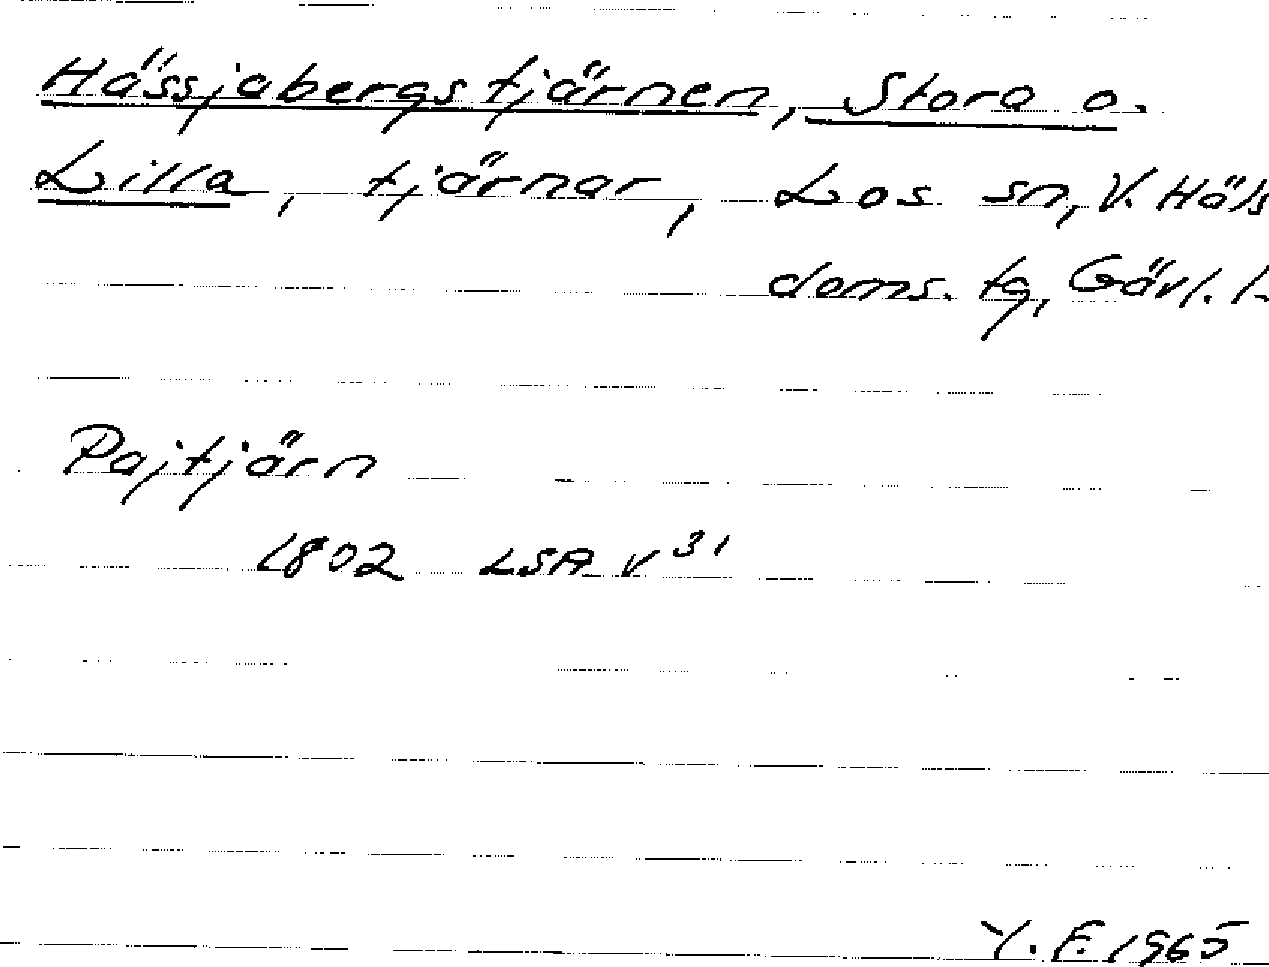 Hässjabergstjärnen, Stora o.
Lilla, tjärnar, Los sn, V. Häls
doms. tg, Gävl. l.
Pajtjärn
1802 LSA V 31
Y. F. 1965